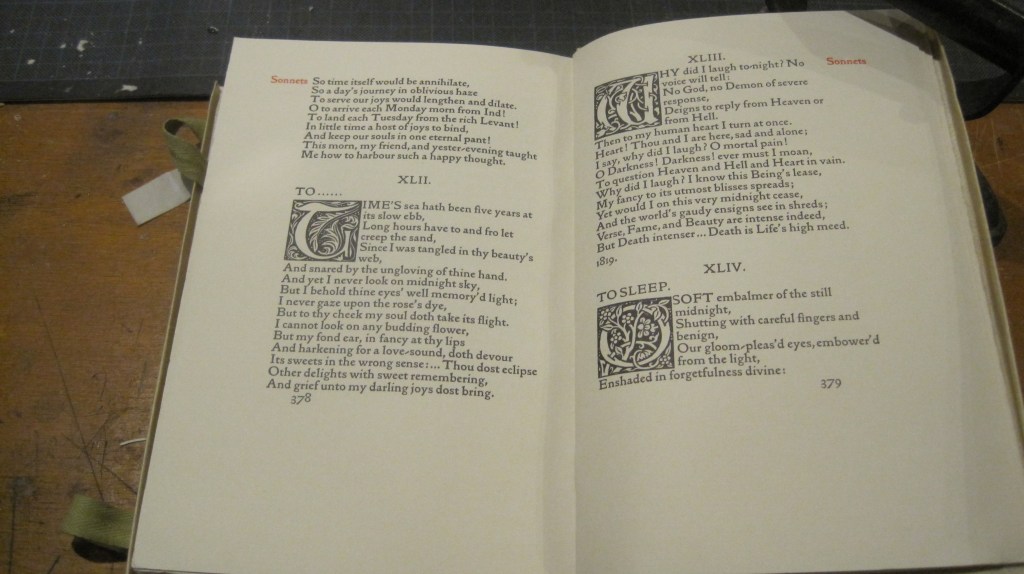 Sonnets So time itself would be annihilate,
So a day's journey in oblivious haze
To serve our joys would lengthen and dilate.
O to arrive each Monday morn from Ind!
To land each Tuesday from the rich Levant!
In little time a host of joys to bind,
And keep our souls in one eternal pant!
This morn, my friend, and yester-evening taught
Me how to harbour such a happy thought.
XLII.
TO......
TIME'S sea hath been five years at
its slow ebb,
Long hours have to and fro let
creep the sand,
Since I was tangled in thy beauty's
web,
And snared by the ungloving of thine hand.
And yet I never look on midnight sky,
But I behold thine eyes' well memory'd light;
I never gaze upon the rose's dye,
But to thy cheek my soul doth take its flight.
I cannot look on any budding flower,
But my fond ear, in fancy at thy lips
And harkening for a love-sound, doth devour
Its sweets in the wrong sense:... Thou dost eclipse
Other delights with sweet remembering,
And grief unto my darling joys dost bring.
378
XLIII.
Sonnets
WHY did I laugh to-night? No
voice will tell:
No God, no Demon of severe
response,
Deigns to reply from Heaven or
from Hell.
Then to my human heart I turn at once.
Heart! Thou and I are here, sad and alone;
I say, why did I laugh? O mortal pain!
O Darkness! Darkness! ever must I moan,
To question Heaven and Hell and Heart in vain.
Why did I laugh? I know this Being's lease,
My fancy to its utmost blisses spreads;
Yet would I on this very midnight cease,
And the world's gaudy ensigns see in shreds;
Verse, Fame, and Beauty are intense indeed,
But Death intenser... Death is Life's high meed.
1819.
XLIV.
TO SLEEP.
O SOFT embalmer of the still
midnight,
Shutting with careful fingers and
benign,
Our gloom-pleas'd eyes, embower'd
from the light,
Enshaded in forgetfulness divine:
379